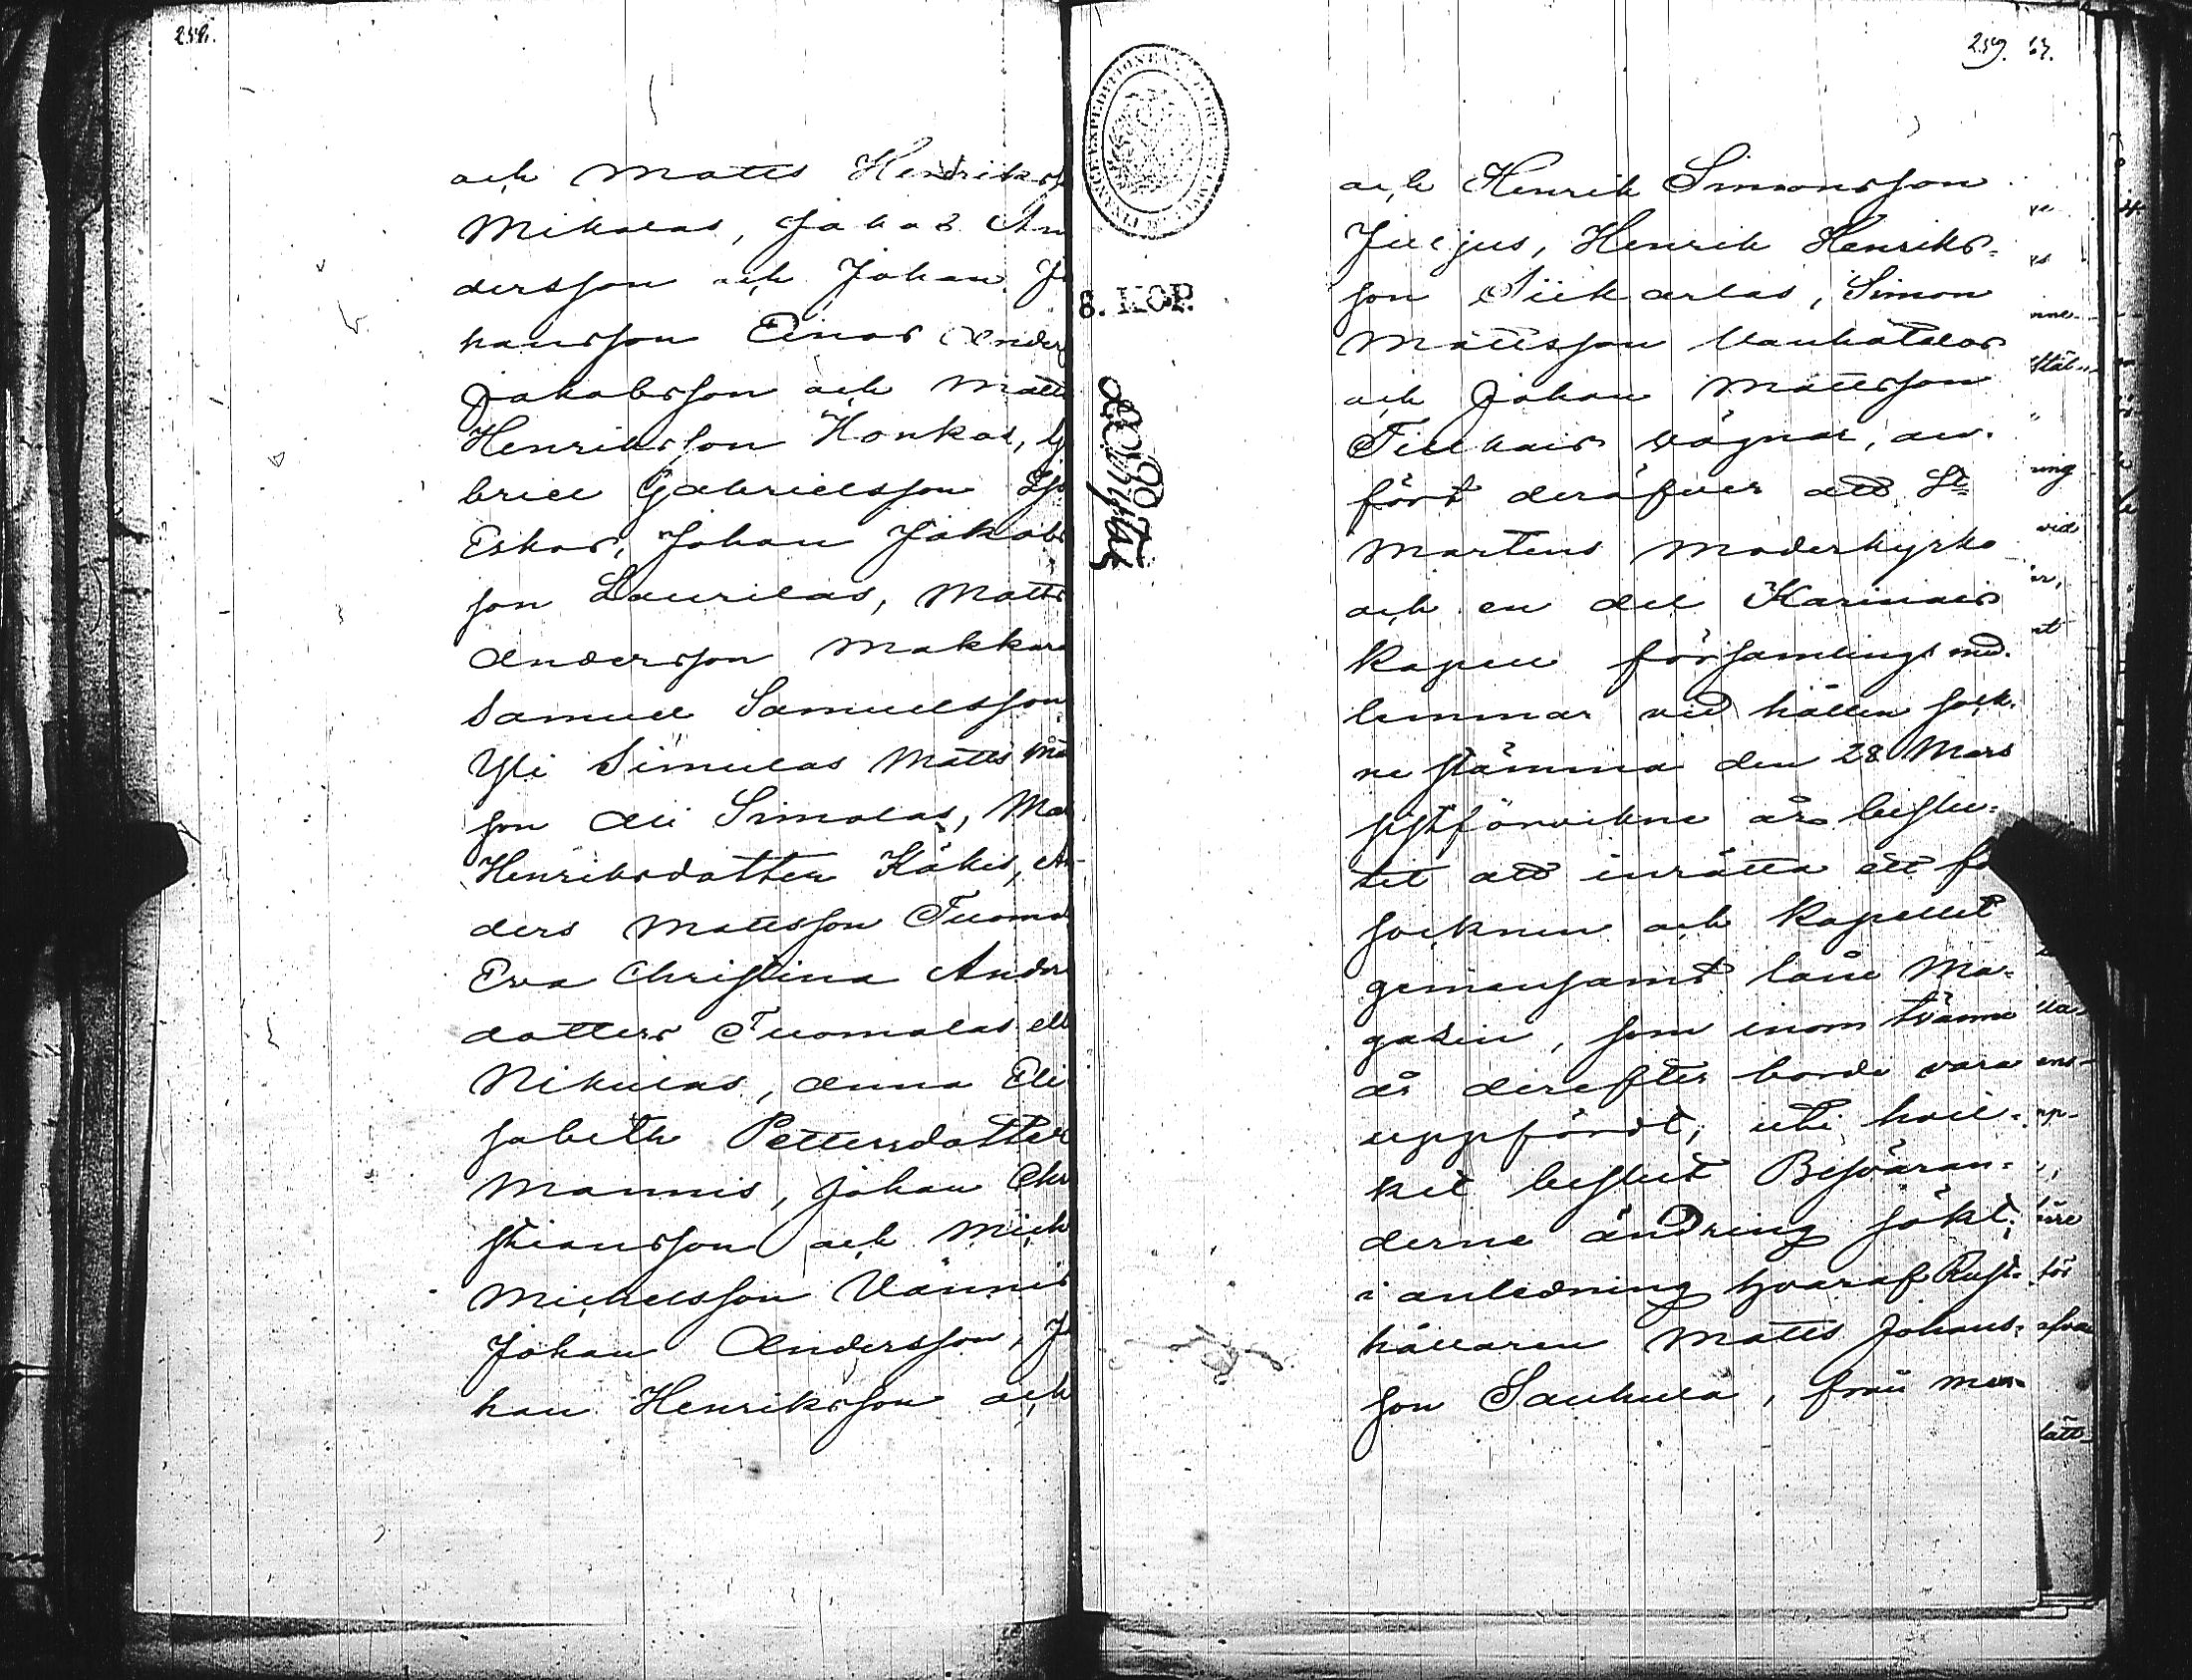 258.
och Matts Henriksso
Mikolas, Jakob An
dersson och Johan Jo
hansson Einos Anders
Jakobsson och Matts
Henriksson Honkas, G
briel Gabrielsson
Eskos, Johan Jakobs
son Laurilas, Matts
Andersson Makkara
Samuel Samuelsson
Yli Simulas Matts Ma
son Ali Simolas, Ma
Henriksdotter Käkis, An-
ders Mattsson Tuomo
Eva Christina Anders
dotters Tuomolas ell
Nikulas, Anna Eli
sabeth Pettersdotter
Mannis, Johan Chr
stiansson och Mich
Michelsson Vännis
Johan Andersson, Jo
han Henriksson och
259.
8. KOP.
och Henrik Simonsson
Juljus, Henrik Henriks-
son Siikarlas, Simon
Mattsson Vanhatalos
och Johan Mattsson
Tillkais vägnar, an-
fört deröfver att St
Martens Moderkyrko
och en del Karinais
Kapell församlings med-
lemmar vid hållen sock-
nestämma den 28 Mars
sistförvikne år beslu-
tit att inrätta ett fö
socknen och Kapellet
gemensamt låne Ma-
gasin, som inom tvänne
år derefter borde vara
uppfördt; uti hvil-
ket beslut Besvären-
derne ändring sökt;
i anledning hvaraf Rust-
hållaren Matts Johans-
son Sauhula, från Mar-